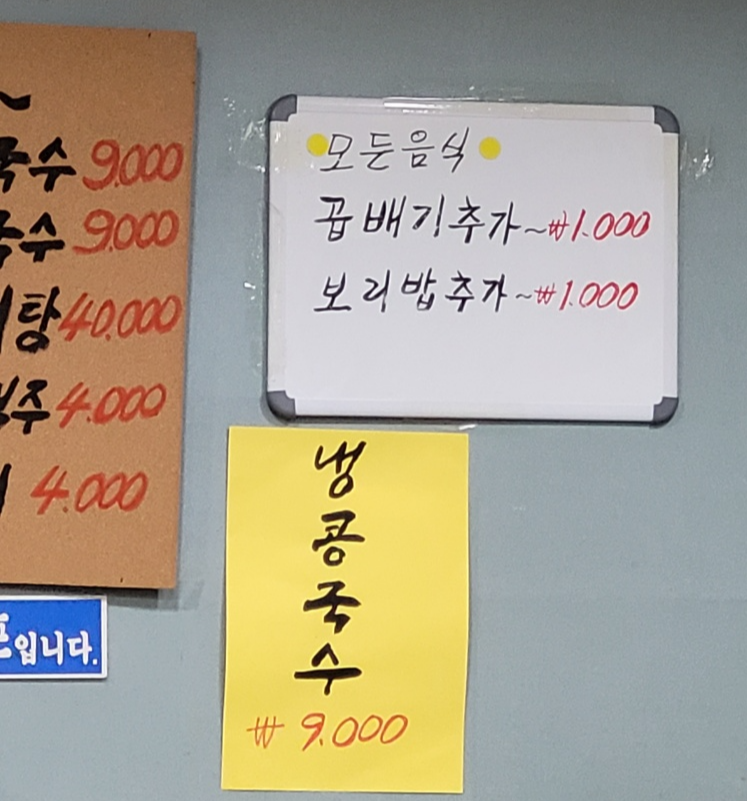 국수 9.000
국수 9.000
탕 40.000
주 4.000
4.000
입니다.
모든음식
곱배기추가~₩1.000
보리밥추가~₩1.000
냉
콩
국
수
₩ 9.000